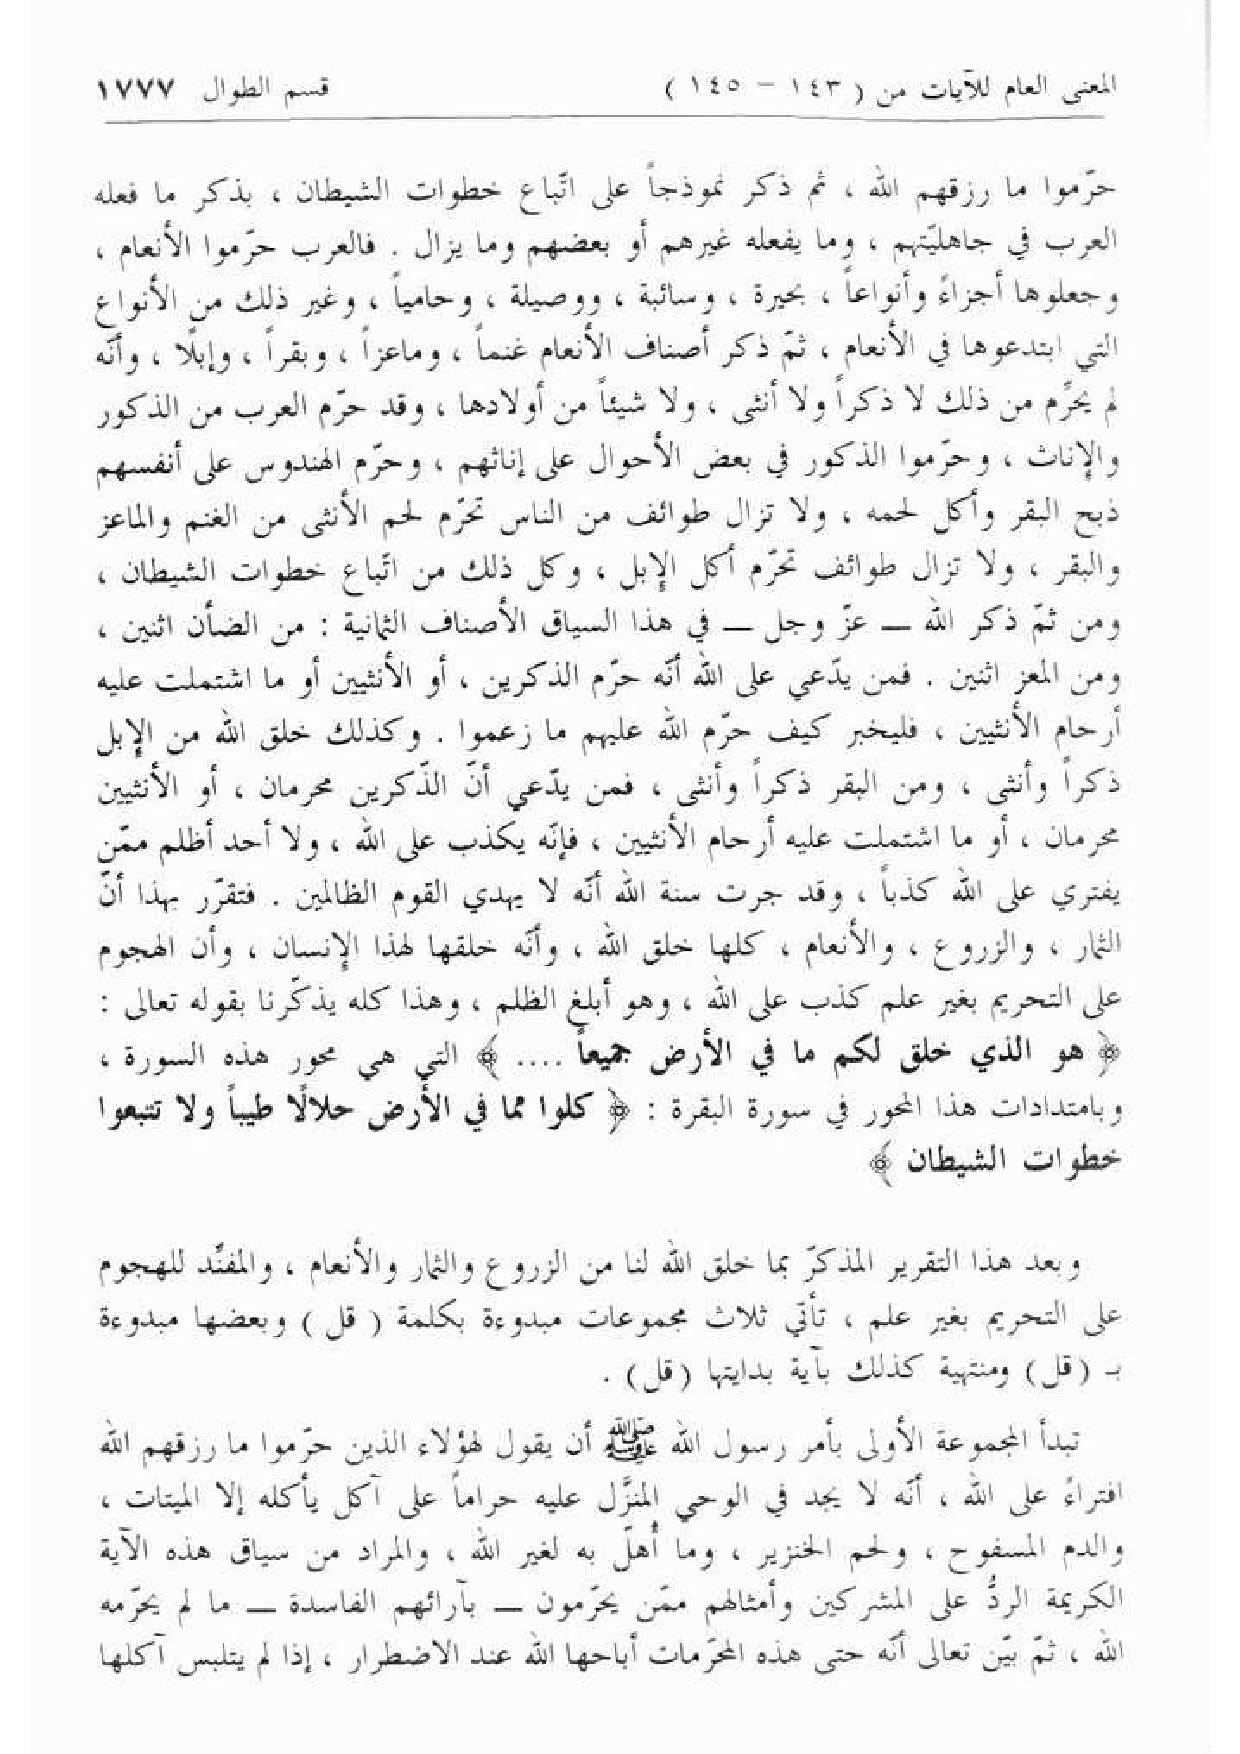 المعنى العام للآيات من ( ١٤٣ – ١٤٥ ) قسم الطوال ١٧٧٧
حرّموا ما رزقهم الله ، ثم ذكر نموذجاً على اتّباع خطوات الشيطان ، بذكر ما فعله
العرب في جاهليّتهم ، وما يفعله غيرهم أو بعضهم وما يزال . فالعرب حرّموا الأنعام ،
وجعلوها أجزاءً وأنواعاً ، بحيرة ، وسائبة ، ووصيلة ، وحامياً ، وغير ذلك من الأنواع
التي ابتدعوها في الأنعام ، ثمّ ذكر أصناف الأنعام غنماً ، وماعزاً ، وبقراً ، وإبلًا ، وأنّه
لم يحرِّم من ذلك لا ذكراً ولا أنثى ، ولا شيئاً من أولادها ، وقد حرّم العرب من الذكور
والإناث ، وحرّموا الذكور في بعض الأحوال على إناثهم ، وحرّم الهندوس على أنفسهم
ذبح البقر وأكل لحمه ، ولا تزال طوائف من الناس تحرّم لحم الأنثى من الغنم والماعز
والبقر ، ولا تزال طوائف تحرّم أكل الإبل ، وكل ذلك من اتّباع خطوات الشيطان ،
ومن ثمّ ذكر الله ــ عزّ وجل ــ في هذا السياق الأصناف الثمانية : من الضأن اثنين ،
ومن المعز اثنين . فمن يدّعي على الله أنّه حرّم الذكرين ، أو الأنثيين أو ما اشتملت عليه
أرحام الأنثيين ، فليخبر كيف حرّم الله عليهم ما زعموا . وكذلك خلق الله من الإبل
ذكراً وأنثى ، ومن البقر ذكراً وأنثى ، فمن يدّعي أنّ الذّكرين محرمان ، أو الأنثيين
محرمان ، أو ما اشتملت عليه أرحام الأنثيين ، فإنّه يكذب على الله ، ولا أحد أظلم ممّن
يفتري على الله كذباً ، وقد جرت سنة الله أنّه لا يهدي القوم الظالمين . فتقرّر بهذا أنّ
الثمار ، والزروع ، والأنعام ، كلها خلق الله ، وأنّه خلقها لهذا الإنسان ، وأن الهجوم
على التحريم بغير علم كذب على الله ، وهو أبلغ الظلم ، وهذا كله يذكّرنا بقوله تعالى :
﴿ هو الذي خلق لكم ما في الأرض جميعاً .... ﴾ التي هي محور هذه السورة ،
وبامتدادات هذا المحور في سورة البقرة : ﴿ كلوا مما في الأرض حلالًا طيباً ولا تتبعوا
خطوات الشيطان ﴾
وبعد هذا التقرير المذكرّ بما خلق الله لنا من الزروع والثمار والأنعام ، والمفنِّد للهجوم
على التحريم بغير علم ، تأتي ثلاث مجموعات مبدوءة بكلمة ( قل ) وبعضها مبدوءة
بـ ( قل ) ومنتهية كذلك بآية بدايتها ( قل ) .
تبدأ المجموعة الأولى بأمر رسول الله ﷺ أن يقول لهؤلاء الذين حرّموا ما رزقهم الله
افتراءً على الله ، أنّه لا يجد في الوحي المنزَّل عليه حراماً على آكل يأكله إلا الميتات ،
والدم المسفوح ، ولحم الخنزير ، وما أُهلّ به لغير الله ، والمراد من سياق هذه الآية
الكريمة الردُّ على المشركين وأمثالهم ممّن يحرّمون ــ بآرائهم الفاسدة ــ ما لم يحرّمه
الله ، ثمّ بيّن تعالى أنّه حتى هذه المحرّمات أباحها الله عند الاضطرار ، إذا لم يتلبس آكلها